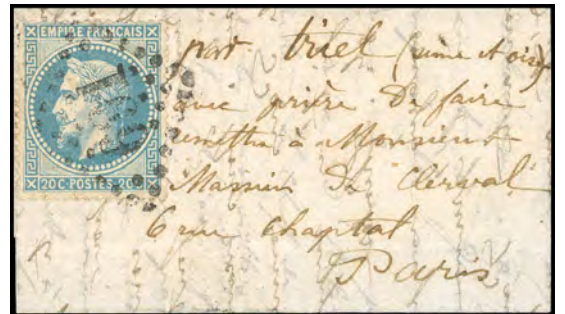 EMPIRE FRANÇAIS
20C POSTES 20C
par triel (seine et oise)
avec prière De faire
remettre à Monsieur
Massion De Clerval
6 rue chaptal
Paris